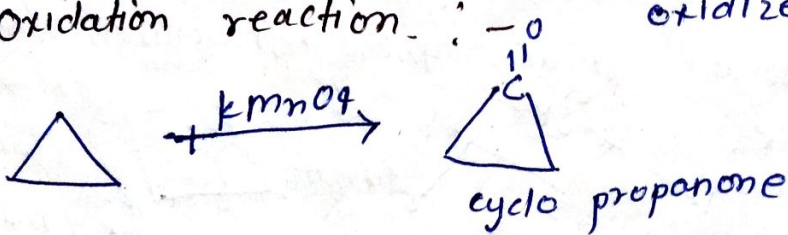 Oxidation reaction. : - O oxidize
||
C
KMnO4
cyclo propanone